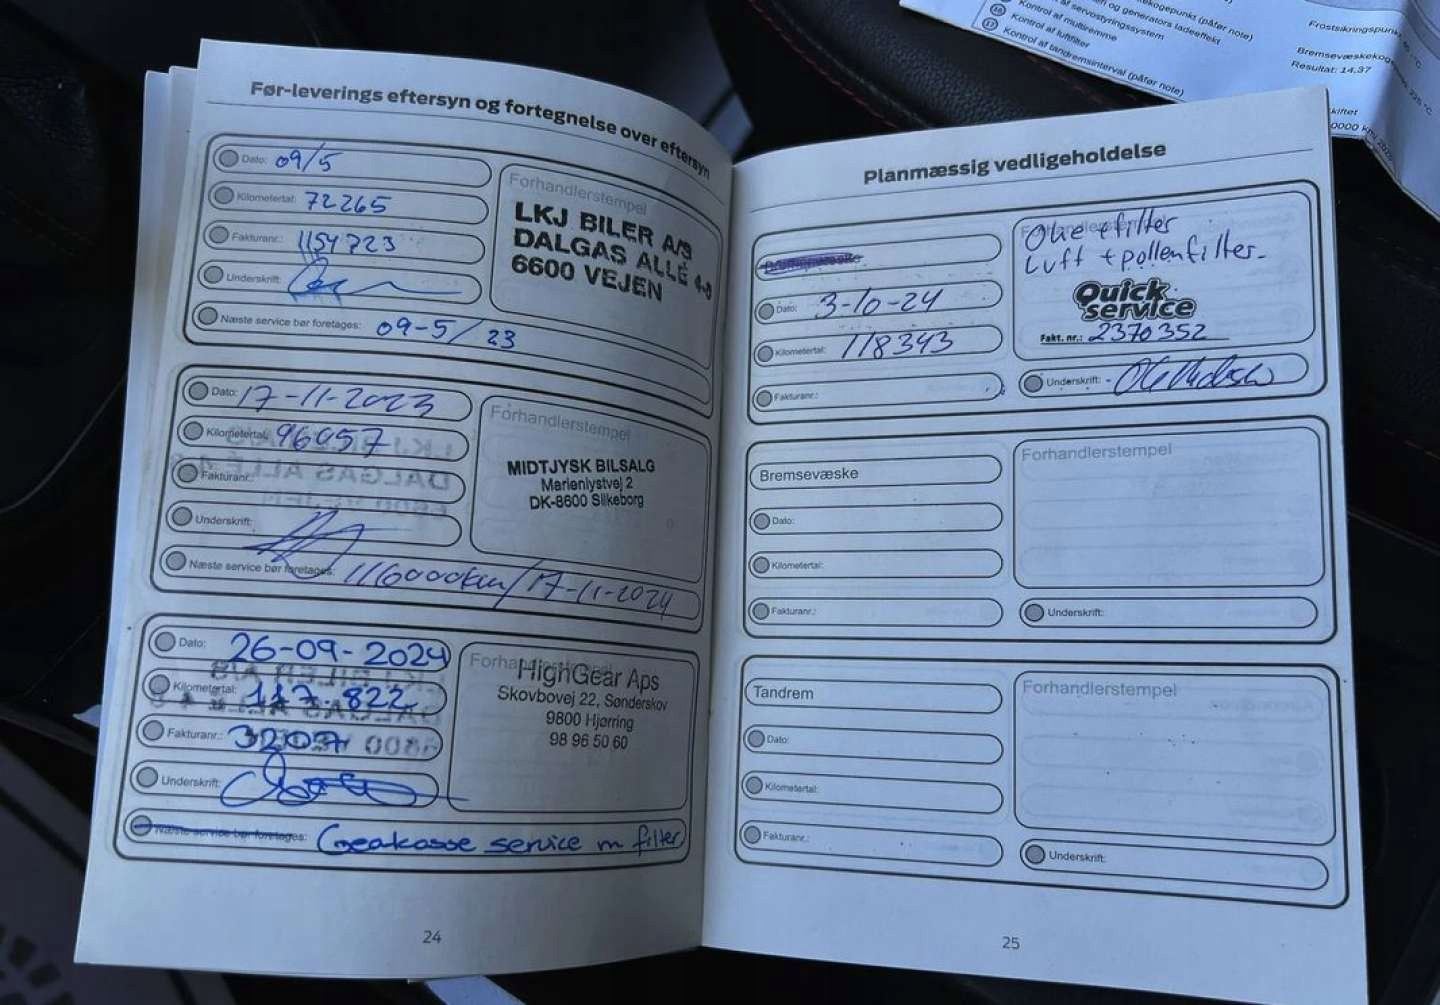 Før-leverings eftersyn og fortegnelse over eftersyn
Dato: 09/5
Kilometertal: 72265
Fakturanr.: 1154723
Underskrift:
Næste service bør foretages: 09-5/23
Forhandlerstempel
LKJ BILER A/S
DALGAS ALLÉ 4-8
6600 VEJEN
Dato: 17-11-2023
Kilometertal: 96057
Fakturanr.:
Underskrift:
Næste service bør foretages: 116000km/17-11-2024
Forhandlerstempel
MIDTJYSK BILSALG
Marienlystvej 2
DK-8600 Silkeborg
Dato: 26-09-2024
Kilometertal: 117.822
Fakturanr.: 3207
Underskrift:
Næste service bør foretages: Geakasse service m filter
Forhandlerstempel
HighGear Aps
Skovbovej 22, Sønderskov
9800 Hjørring
98 96 50 60
24
Planmæssig vedligeholdelse
Bremsevæske
Dato: 3-10-24
Kilometertal: 118343
Fakturanr.:
Forhandlerstempel
Olie + filter
Luft + pollenfilter.
Quick
service
Fakt. nr.: 2370352
Underskrift:
Bremsevæske
Dato:
Kilometertal:
Fakturanr.:
Forhandlerstempel
Underskrift:
Tandrem
Dato:
Kilometertal:
Fakturanr.:
Forhandlerstempel
Underskrift:
25
kogepunkt (påfør note)
og generators ladeeffekt
af servostyringssystem
16 Kontrol af multiremme
17 Kontrol af luftfilter
Kontrol af tandremsinterval (påfør note)
Frostsikringspunkt
°C
Bremsevæskekog
225 °C
Resultat: 14.37